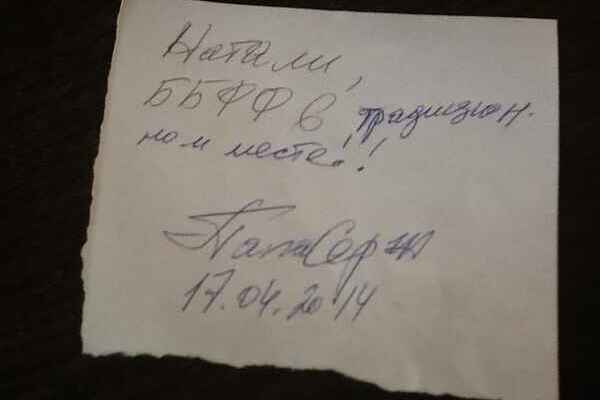 Натали,
ББФФ в традицион-
ном месте!!
ПапаСерж
17.04.2014